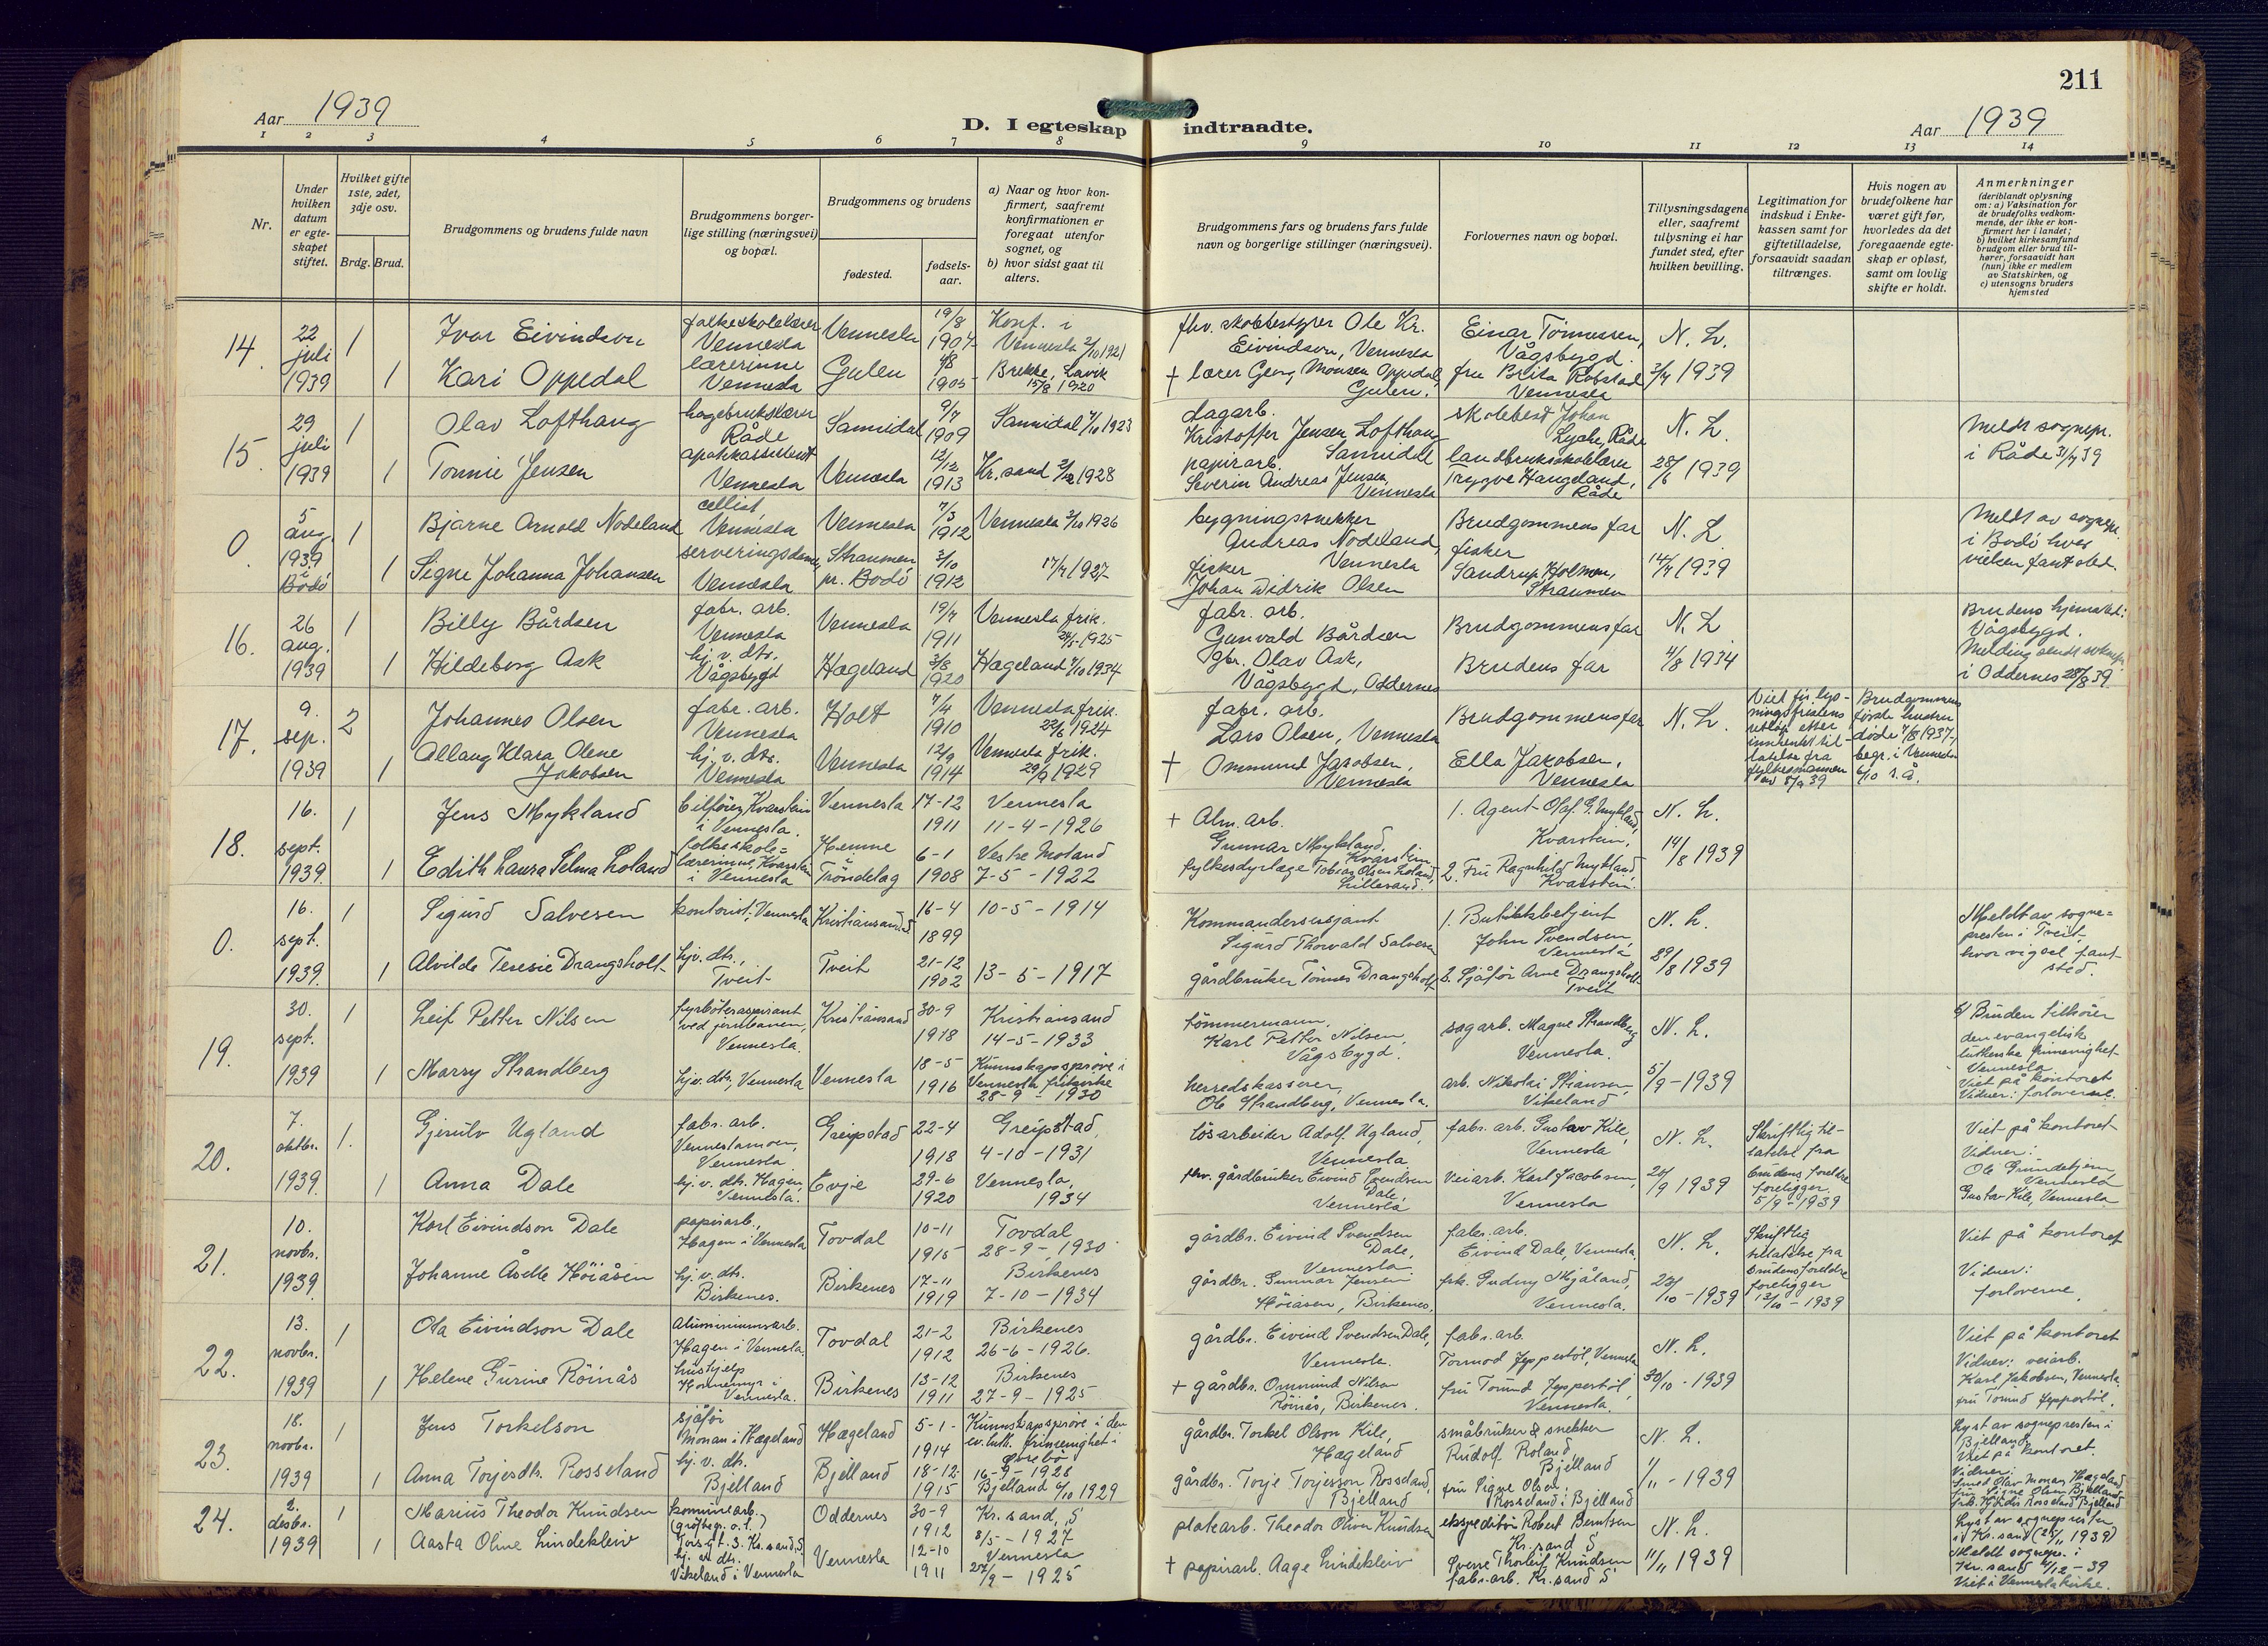 211
Aar 1939
D. I egteskap indtraadte.
Aar 1939
1 2 3 4 5 6 7 8 9 10 11 12 13 14
Nr.
Under hvilken datum er egteskapet stiftet.
Hvilket gifte 1ste, 2det, 3dje osv.
Brdg. Brud.
Brudgommens og brudens fulde navn
Brudgommens borgerlige stilling (næringsvei) og bopæl.
Brudgommens og brudens
fødested.
fødselsaar.
a) Naar og hvor konfirmert, saafremt konfirmationen er foregaat utenfor sognet, og
b) hvor sidst gaat til alters.
Brudgommens fars og brudens fars fulde navn og borgerlige stillinger (næringsvei).
Forlovernes navn og bopæl.
Tillysningsdagene eller, saafremt tillysning ei har fundet sted, efter hvilken bevilling.
Legitimation for indskud i Enkekassen samt for giftetilladelse, forsaavidt saadan tiltrænges.
Hvis nogen av brudefolkene har været gift før, hvorledes da det foregaaende egteskap er opløst, samt om lovlig skifte er holdt.
Anmerkninger
(deriblandt oplysning om: a) Vaksination for de brudefolks vedkommende, der ikke er konfirmert her i landet;
b) hvilket kirkesamfund brudgom eller brud tilhører, forsaavidt han (hun) ikke er medlem av Statskirken, og
c) utensogns bruders hjemsted
14. 22 juli 1939
1 Ivar Eivindson folkeskolelærer Vennesla Vennesla 19/8 1904 Konf. i Vennesla 2/10 1921
1 Kari Oppedal lærerinne Vennesla Gulen 4/8 1905 Brekke, Lavik 15/8 1920
fhv. skolebestyrer Ole Kr. Eivindson, Vennesla
Einar Tönnessen, Vågsbygd. N. L.
+ lærer Georg Monsen Oppedal, Gulen.
fru Brita Robstad Vennesla 3/7 1939
15. 29 juli 1939
1 Olav Lofthaug hagebrukslærer Råde Sannidal 9/7 1909 Sannidal 7/10 1923
1 Tonnie Jensen apotekassistent Vennesla Vennesla 12/12 1913 Kr.sand 2/12 1928
dagarb. Kristoffer Jensen Lofthaug Sannidal
skolebest Johan Lyche, Råde N. L.
papirarb. Severin Andreas Jensen, Vennesla
landbruksskolelærer Trygve Haugeland, Råde 28/6 1939
Meldt sognepr. i Råde 31/7 39
0 5 aug 1939 i Bodö
1 Bjarne Arnold Nodeland cellist, Vennesla Vennesla 7/5 1912 Vennesla 3/10 1926
1 Signe Johanna Johansen serveringsdame, Vennesla Straumen pr. Bodö 3/10 1912 17/7 1927
bygningssnekker Andreas Nodeland, Vennesla
Brudgommens far N. L.
fisker Johan Didrik Olsen
fisker Sandrup Holmen, Straumen 14/7 1939
Meldt av sognepr. i Bodö hvor vielsen fant sted.
16. 26 aug. 1939
1 Billy Bårdsen fabr. arb. Vennesla Vennesla 19/7 1911 Vennesla frik. 24/5 1925
1 Hildeborg Ask hj. v. dtr. Vågsbygd Hægeland 3/8 1920 Hægeland 7/10 1934
fabr. arb. Gunvald Bårdsen
Brudgommens far N. L.
gbr. Olav Ask, Vågsbygd, Oddernes
Brudens far 4/8 1934
Brudens hjemsted: Vågsbygd. Melding sendt sognepr. i Oddernes 28/8 39.
17. 9. sep. 1939
2 Johannes Olsen fabr. arb. Vennesla Holt 7/4 1910 Vennesla frik. 22/6 1924
1 Allaug Klara Olene Jakobsen hj. v. dtr. Vennesla Vennesla 12/9 1914 Vennesla frik. 29/9 1929
fabr. arb. Lars Olsen, Vennesla
Brudgommens far N. L.
+ Ommund Jakobsen, Vennesla
Ella Jakobsen, Vennesla
Viet för lysningsfristens utlöp etter innhentet tillatelse fra fylkesmannen av 8/9 39
Brudgommens første hustru døde 4/8 1937, begr. i Vennesla 6/10 s.å.
18. 16. sept. 1939.
1 Jens Mykland bilförer, Kvarstein i Vennesla. Vennesla 17-12 1911 Vennesla 11-4-1926
1 Edith Laura Selma Loland folkeskole= lærerinne, Kvarstein i Vennesla Hemne i Tröndelag 6-1 1908 Vestre Moland 7-5-1922
+ Alm. arb. Gunnar Mykland, Kvarstein.
1. Agent Olaf G. Mykland, Kvarstein, N. L.
fylkesdyrlæge Tobias Olsen Loland, Lillesand.
2. Fru Ragnhild Mykland, Kvarstein. 14/8 1939
0. 16. sept. 1939.
1 Sigurd Salvesen kontorist, Vennesla Kristiansand S 16-4 1899 10-5-1914
1 Alvilde Teresie Drangsholt hj. v. dtr., Tveit Tveit 21-12 1902 13-5-1917
Kommandersersjant Sigurd Thorvald Salvesen
1. Butikkbetjent John Svendsen, Vennesla N. L.
gårdbruker Tönnes Drangsholt
2. Sjåför Arne Drangsholt Tveit 29/8 1939
Meldt av sogne= presten i Tveit, hvor vigsel fant sted.
19. 30. sept. 1939
1 Leif Petter Nilsen fyrböteraspirant ved jernbanen, Vennesla. Kristiansand 30-9 1918 Kristiansand 14-5-1933
1 Marry Strandberg hj. v. dtr., Vennesla Vennesla 18-5 1916 Kunnskapspröve i Vennesla frikirke 28-9-1930
tömmermann, Karl Petter Nilsen, Vågsbygd.
sagarb. Magne Strandberg Vennesla. N. L.
herredskasserer, Ole Strandberg, Vennesla.
arb. Nikolai Stiansen, Vikeland 5/9-1939
b/ Bruden tilhörer den evangelisk lutherske frimenighet Vennesla.
Viet på kontoret Vidner: forloverne.
20. 7. oktbr. 1939.
1. Gjerulv Ugland fabr. arb. Venneslamoen, Vennesla Greipstad 22-4 1918 Greipstad, 4-10-1931
1 Anna Dale hj. v. dtr. Hagen, Vennesla. Evje 29-6 1920 Vennesla, 1934
lösarbeider Adolf Ugland, Vennesla
fabr. arb. Gustav Kile, Vennesla N. L.
fhv. gårdbruker Eivind Svendsen Dale, Vennesla
veiarb. Karl Jacobsen, Vennesla 20/9 1939
Skriftlig tillatelse fra brudens foreldre foreligger 5/9-1939
Viet på kontoret Vidner: Ole Grundetjern Vennesla Gustav Kile, Vennesla
21. 10. novbr. 1939.
Karl Eivindson Dale papirarb., Hagen i Vennesla Tovdal 10-11 1915 Tovdal 28-9-1930
Johanne Åselle Höiåsen hj. v. dtr. Birkenes. Birkenes 17-11 1919 Birkenes 7-10-1934
gårdbr. Eivind Svendsen Dale, Vennesla.
fabr. arb. Eivind Dale, Vennesla N. L.
gårdbr. Gunnar Jensen Höiåsen, Birkenes,
frk. Gudny Mjåland, Vennesla. 23/10-1939
Skriftlig tillatelse fra brudens foreldre foreligger 12/10-1939
Viet på kontoret Vidner: forloverne.
22. 13. novbr. 1939
1 Ola Eivindson Dale Aluminiumsarb. Hagen i Vennesla. Tovdal 21-2 1912 Birkenes 26-6-1926.
1 Helene Gurine Röinås hushjelp Hommemyr i Vennesla. Birkenes 13-12 1911 Birkenes 27-9-1925
gårdbr. Eivind Svendsen Dale, Vennesla.
fabr. arb. Tormod Jeppestöl, Vennesla N. L.
+ gårdbr. Ommund Nilson Röinås, Birkenes.
fru Torund Jeppestöl, Vennesla. 30/10-1939
Viet på kontoret Vidner: veiarb. Karl Jakobsen, Vennesla. fru Torund Jeppestöl.
23. 18. novbr. 1939
1 Jens Torkelson sjåför Monan i Hægeland Hægeland 5-1-1914 Kunnskapspröve i den ev. luth. frimenighet i Övrebö 16-9-1928
1 Anna Torjesdtr. Rosseland hj. v. dtr. Bjelland Bjelland 18-12 1915 Bjelland 6/10 1929
gårdbr. Torkel Olson Kile, Hægeland
småbruker & snekker Rudolf Roland, Bjelland N. L.
gårdbr. Torje Torjesson Rosseland, Bjelland
fru Signe Olsen Rosseland i Bjelland 1/11-1939
Lyst av sognepresten i Bjelland. Viet på kontoret.
Vidner: Smed Olav Monan Hægeland fru Signe Olsen Bjelland frk. Hjördis Rosseland Bjelland
24. 2. desbr. 1939
1 Marius Theodor Knudsen kommunearb. (gröftegr. o.l.) Torsgt. 3. Kr.sand, S Oddernes 30-9 1912 Kr. sand, S 8/5-1927
1 Aasta Oline Lindekleiv hj. v. dtr. Vikeland i Vennesla Vennesla 12-10 1911 Vennesla 27/9-1925
platearb. Theodor Oliver Knudsen
ekspeditör Robert Berntsen Kr. sand S N. L.
+ papirarb. Aage Lindekleiv
Sverre Thorleif Knudsen fabr. arb. Kr. sand S 11/11 1939
Lyst av sognepresten i Kr. sand (25/11 1939)
Meldt sognepr. i Kr. sand 4/12-39
Viet i Vennesla kirke.